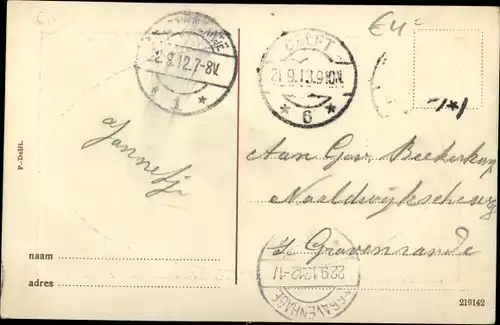 22.9.12.7-8V.
1
DELFT
21.9.12.9-10N.
6
Jannetje
P.-Delft.
Aan Gov. Beekerkop
Naaldwijkscheweg
's Gravenzande
22.9.12.12-1V
'S-GRAVENHAGE
naam
adres
219142